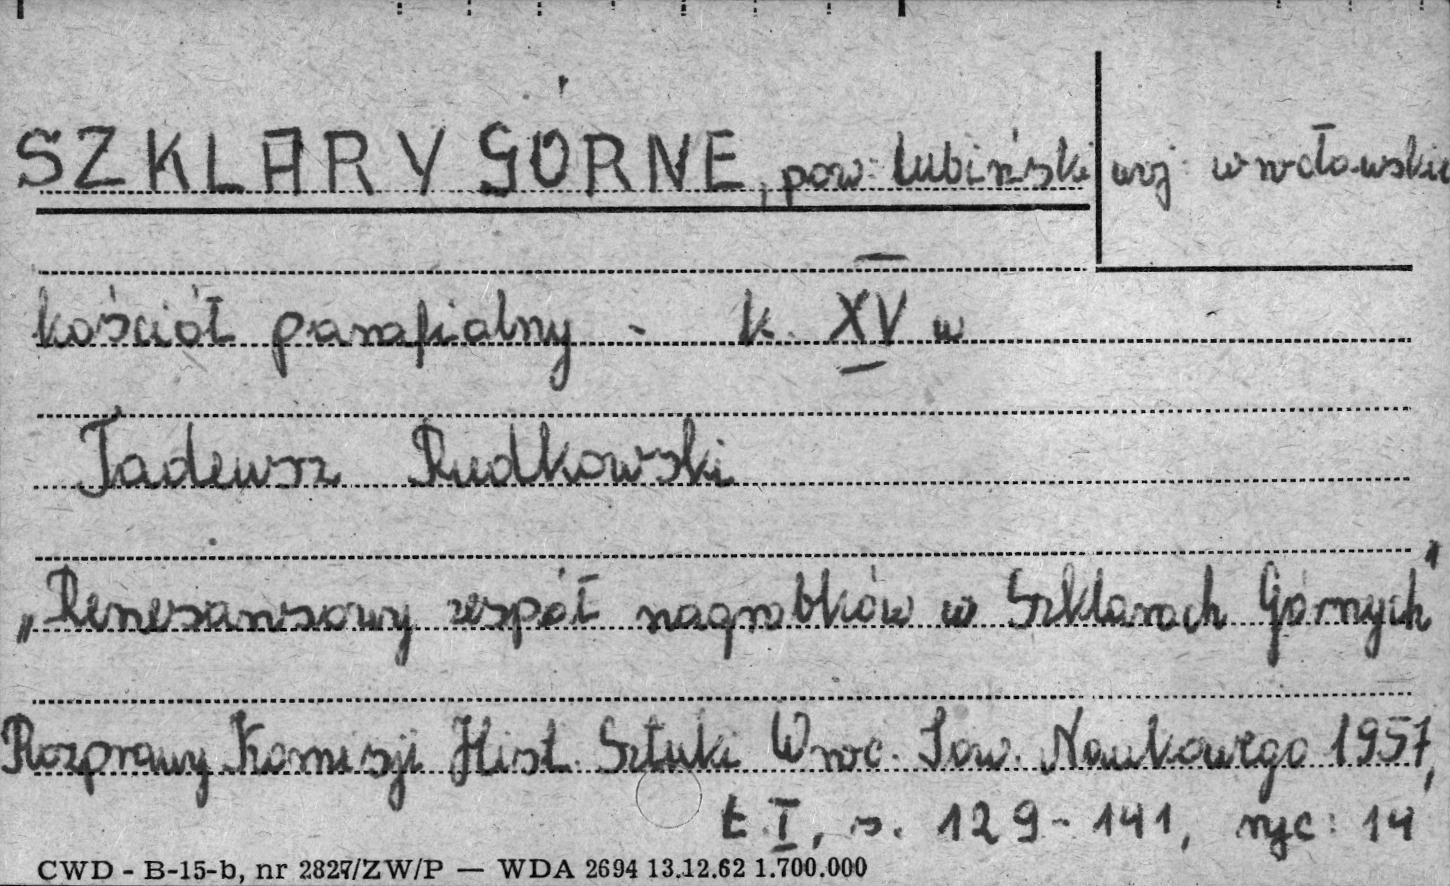 SZKLARY GÓRNE, pow. lubiński woj. wrocławskie
kościół parafialny - k. XV w
Tadeusz Rudkowski
„Renesansowy zespół nagrobków w Szklarach Górnych"
Rozprawy Komisji Hist. Sztuki Wroc. Tow. Naukowego 1957,
t. I, s. 129-141, ryc: 14
CWD - B-15-b, nr 2827/ZW/P — WDA 2694 13.12.62 1.700.000